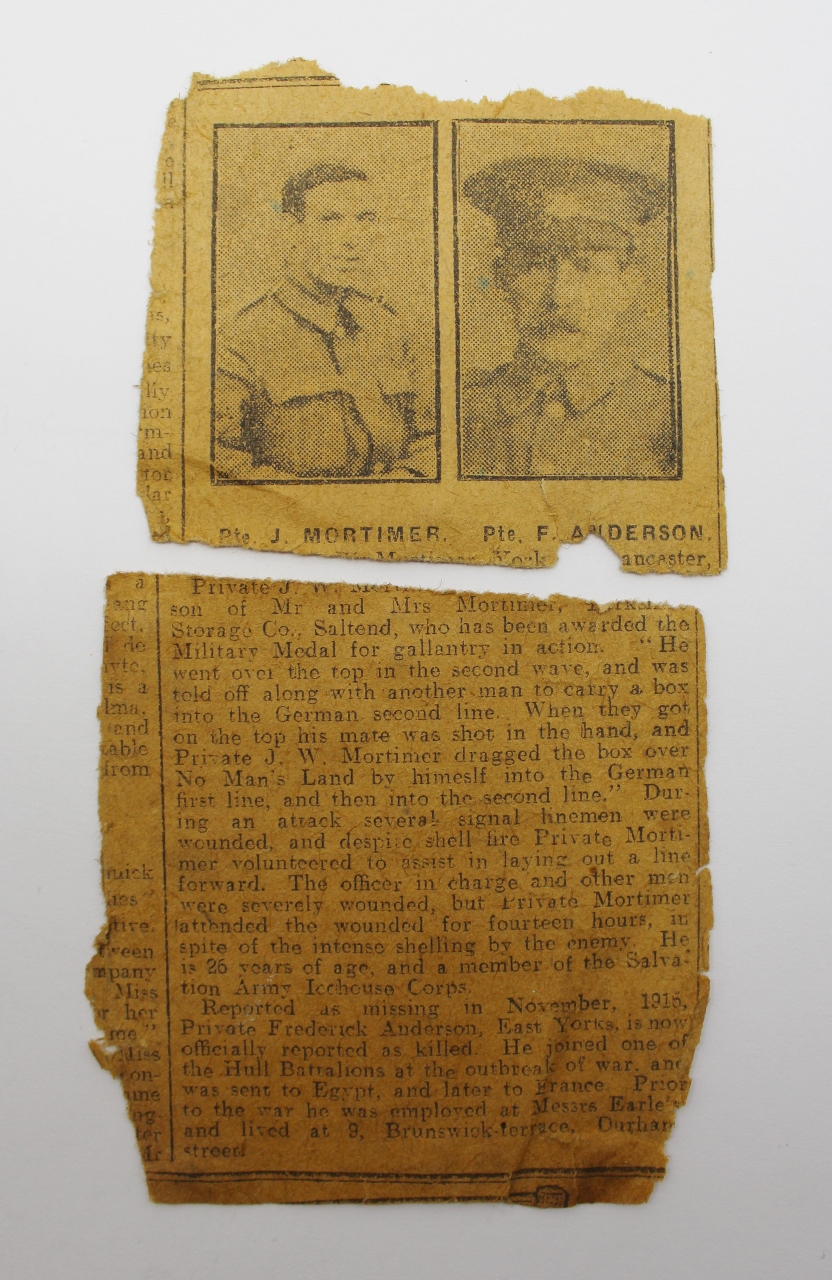 o
ll
is,
ty
nes
lly
ion
m-
and
tor
lar
Pte. J. MORTIMER. Pte. F. ANDERSON.
Mortimer, York ancaster,
a
ang
ect.
de
yte,
is a
lma.
and
table
from
uick
ies"
tive.
tween
mpany
Miss
r her
me"
Miss
on-
ume
ng-
ter
Mr
Private J. W.
son of Mr and Mrs Mortimer,
Storage Co., Saltend, who has been awarded the
Military Medal for gallantry in action. "He
went over the top in the second wave, and was
told off along with another man to carry a box
into the German second line. When they got
on the top his mate was shot in the hand, and
Private J. W. Mortimer dragged the box over
No Man's Land by himeslf into the German
first line, and then into the second line." Dur-
ing an attack several signal linemen were
wounded, and despite shell fire Private Morti-
mer volunteered to assist in laying out a line
forward. The officer in charge and other men
were severely wounded, but Private Mortimer
attended the wounded for fourteen hours, in
spite of the intense shelling by the enemy. He
is 26 years of age, and a member of the Salva-
tion Army Icehouse Corps.
Reported as missing in November, 1916,
Private Frederick Anderson, East Yorks, is now
officially reported as killed. He joined one of
the Hull Battalions at the outbreak of war, and
was sent to Egypt, and later to France. Prior
to the war he was employed at Messrs Earle's
and lived at 9, Brunswick-terrace, Durham
street.